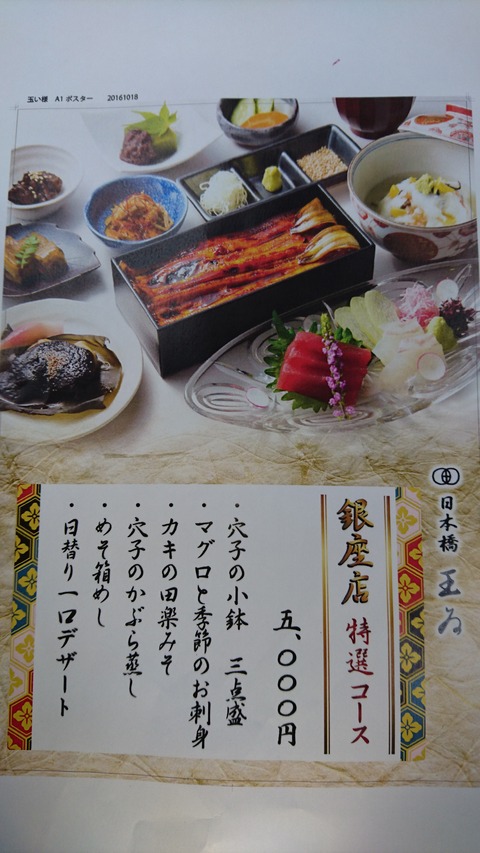 玉い様　A1ポスター　20161018
日本橋 玉ゐ
銀座店 特選コース
五、〇〇〇円
・穴子の小鉢　三点盛
・マグロと季節のお刺身
・カキの田楽みそ
・穴子のかぶら蒸し
・めそ箱めし
・日替り一口デザート